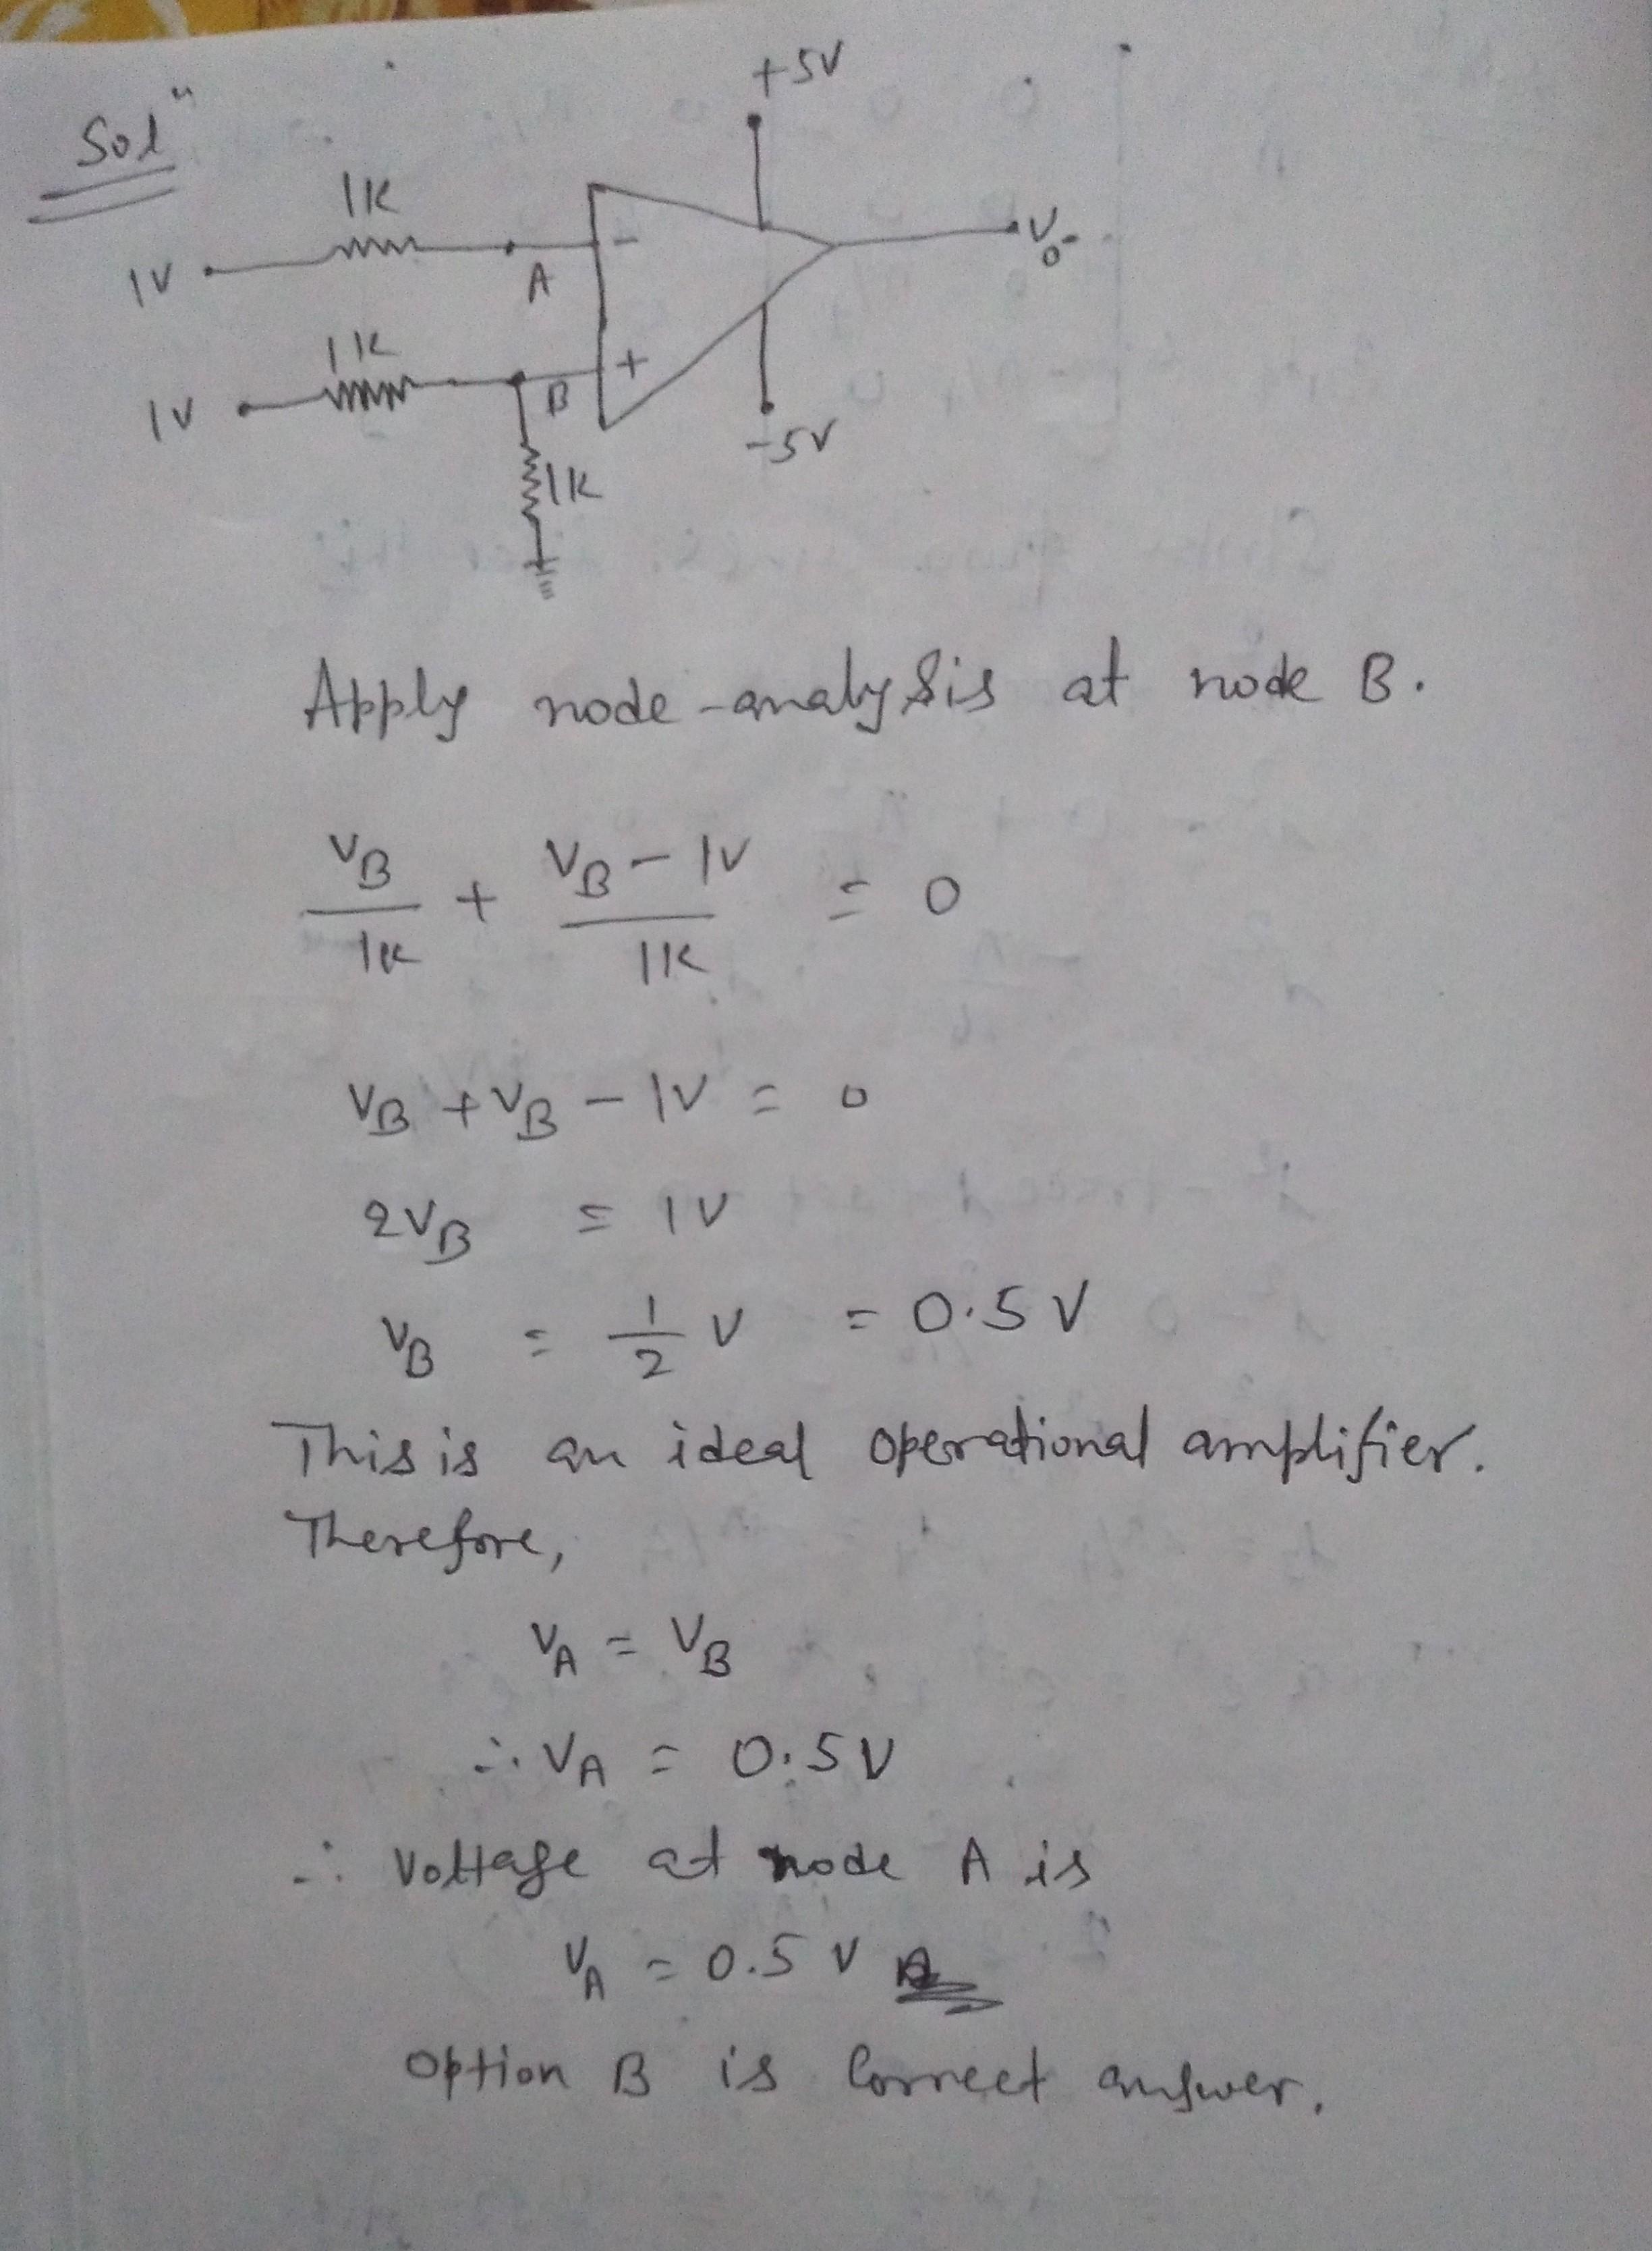 +5V
Solⁿ
1K
1V
A
-
V₀-
1K
1V
B
+
-5V
1K
Apply node-analysis at node B.
V_B/1K + (V_B - 1V)/1K = 0
V_B + V_B - 1V = 0
2V_B = 1V
V_B = 1/2 V = 0.5V
This is an ideal operational amplifier.
Therefore,
V_A = V_B
∴ V_A = 0.5V
∴ Voltage at node A is
V_A = 0.5 V
option B is correct answer.